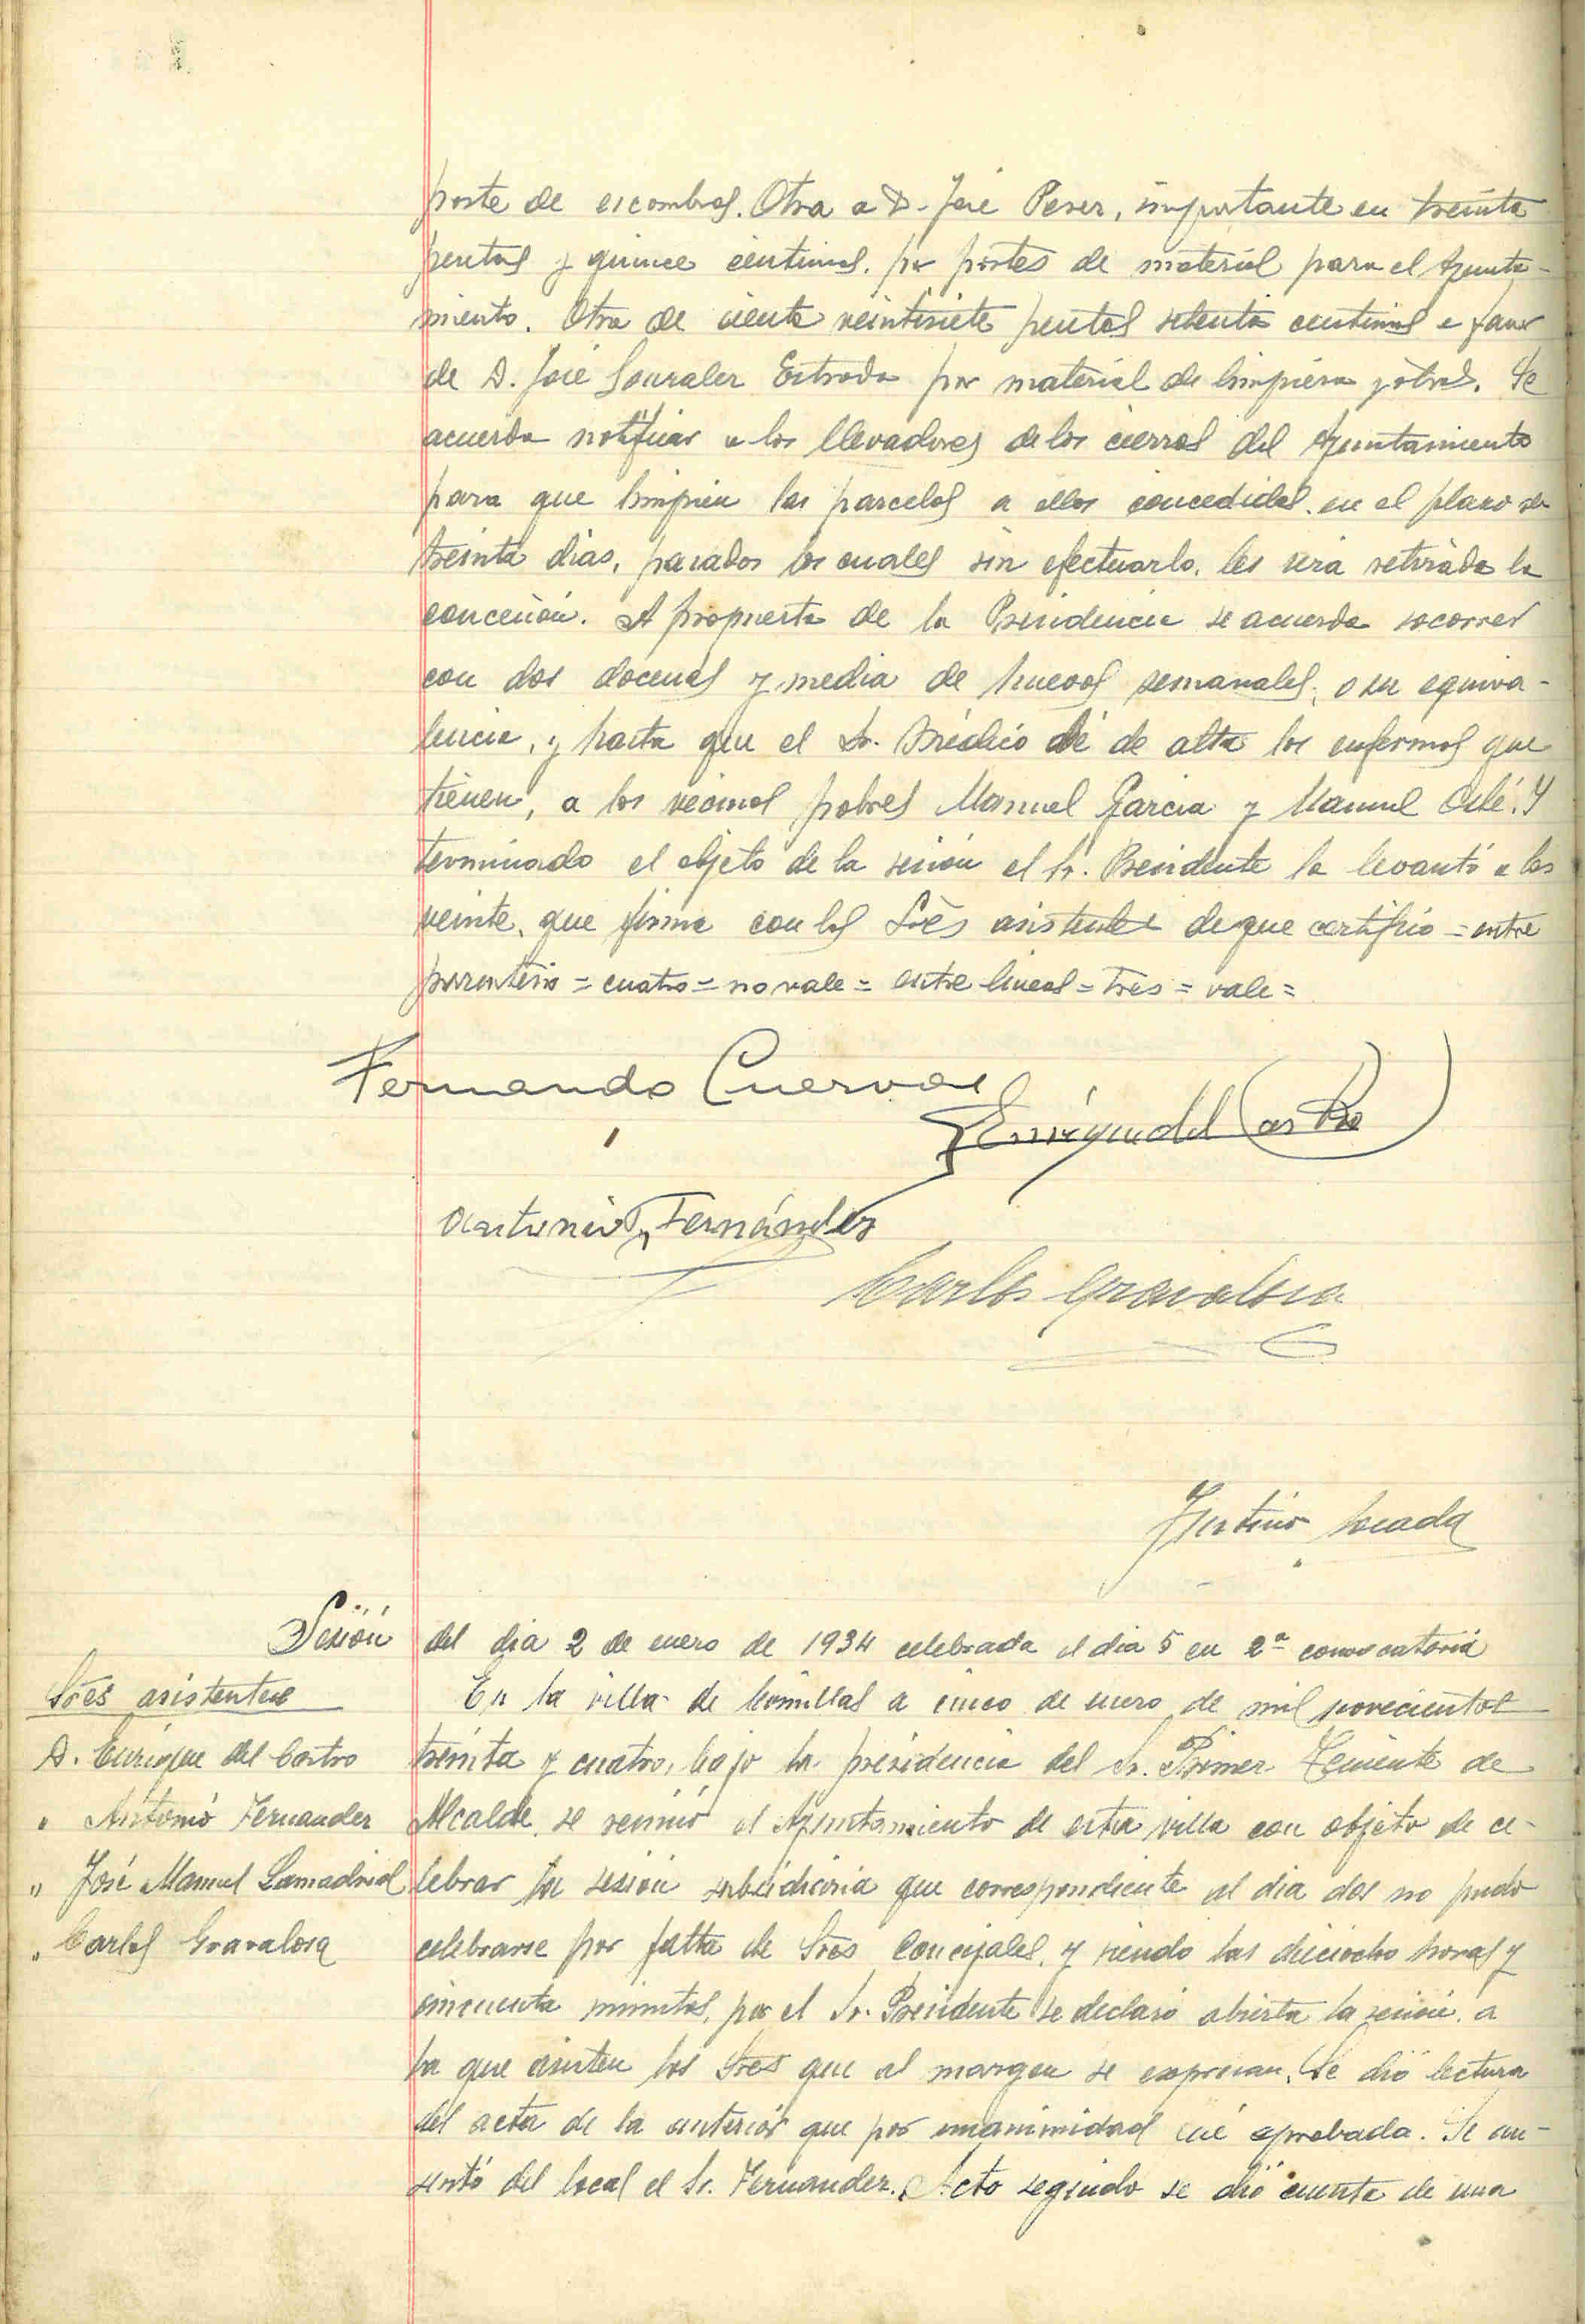 porte de escombros. Otra a D. José Perez, importante en treinta
pesetas y quince centimos, por portes de material para el Ayunta-
miento. Otra de ciento veintisiete pesetas setenta centimos a favor
de D. José Gonzalez Estrada por material de limpieza y otros. Se
acuerda notificar a los llevadores de los cierros del Ayuntamiento
para que limpien las parcelas a ellos concedidas en el plazo de
treinta dias, pasados los cuales sin efectuarlo, les sera retirada la
concesión. A propuesta de la Presidencia se acuerda socorrer
con dos docenas y media de huevos semanales, o su equiva-
lencia, y hasta que el Sr. Médico dé de alta los enfermos que
tienen, a los vecinos pobres Manuel Garcia y Manuel. Y
terminado el objeto de la sesión el Sr. Presidente la levantó a las
veinte, que firma con los Srēs asistentes de que certifico = entre
parentesis = cuatro = no vale = entre lineas = tres = vale =
Fernando Cuevas
Enrique del Castro
Antonio Fernández
Carlos Gravalosa
Justino
Sesión del dia 2 de enero de 1934 celebrada el dia 5 en 2ª convocatoria
Srēs asistentes
D. Enrique del Castro
" Antonio Fernandez
" José Manuel Lamadrid
" Carlos Gravalosa
En la villa de Comillas a cinco de enero de mil novecientos
treinta y cuatro, bajo la presidencia del Sr. Primer Teniente de
Alcalde, se reunió el Ayuntamiento de esta villa con objeto de ce-
lebrar la sesión subsidiaria que correspondiente al dia dos no pudo
celebrarse por falta de Srēs Concejales, y siendo las dieciocho horas y
cincuenta minutos, por el Sr. Presidente se declaró abierta la sesión, a
la que asisten los Srēs que al margen se expresan. Se dió lectura
del acta de la anterior que por unanimidad fué aprobada. Se au-
sentó del local el Sr. Fernandez. Acto seguido se dió cuenta de una